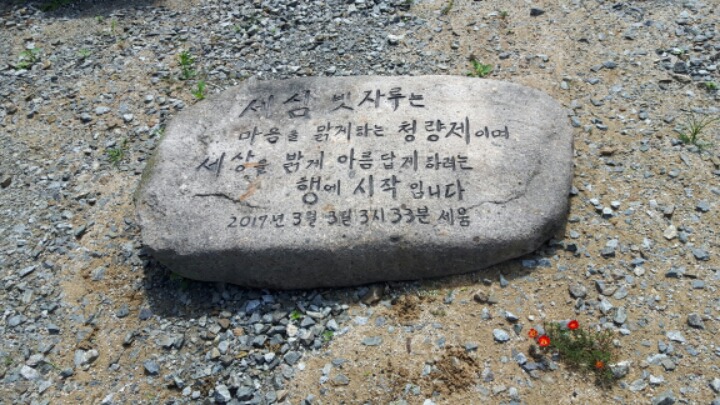 세심 빗자루는
마음을 맑게하는 청량제이며
세상을 밝게 아름답게하려는
행에 시작입니다
2017년 3월 3일 3시 33분 세움